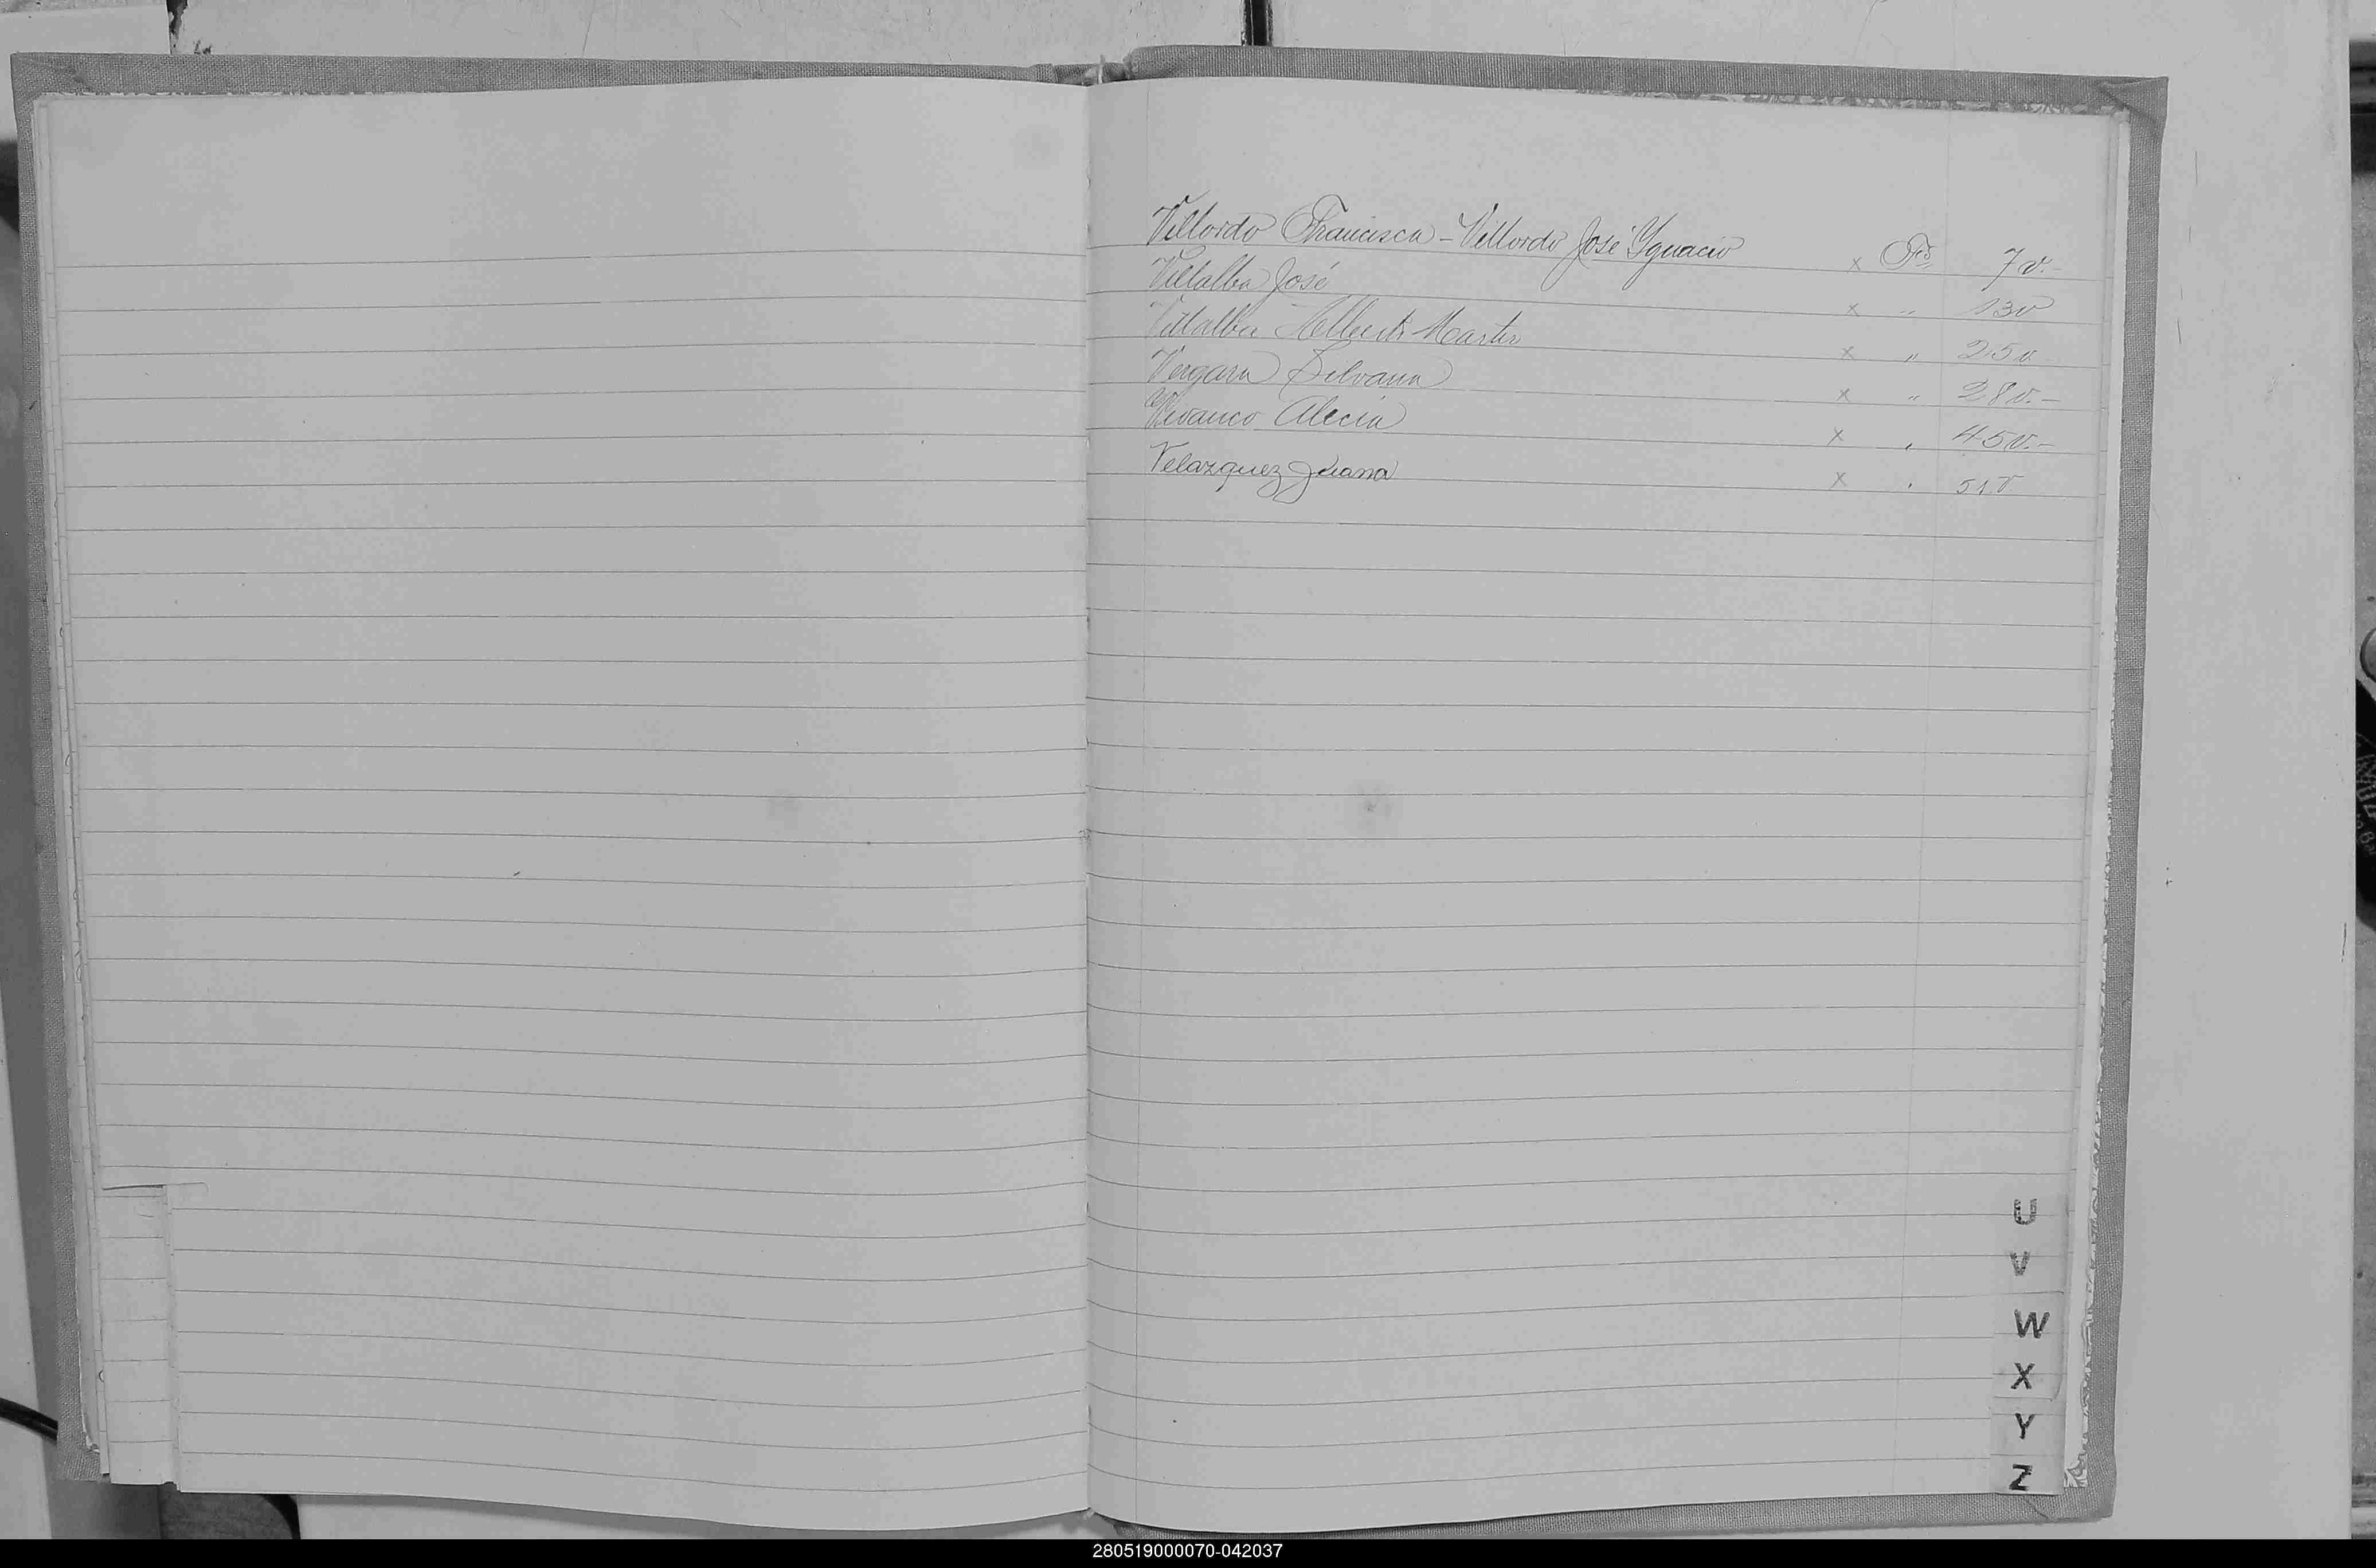 Villordo Francisca - Villordo José Ygnacio x Fo. 7 v.-
Villalba José x " 13v
Villalba Alberto Martin x " 25 v.
Vergara Silvana x " 28 v.-
Vivanco Alecia x " 45v.-
Velazquez Juana x " 51.v.
U
V
W
X
Y
Z
280519000070-042037